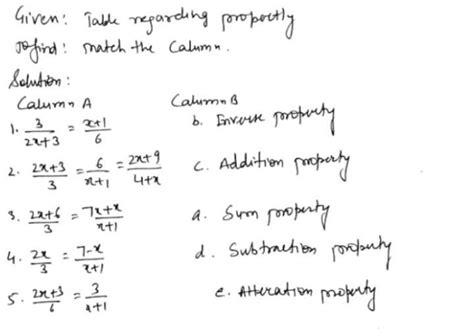 Given: Table regarding propoetly
To find: match the Calumn.
Solution:
Calumn A Calumn B
1. 3/(2x+3) = (x+1)/6 b. Inverse property
2. (2x+3)/3 = 6/(x+1) = (2x+9)/(4+x) c. Addition property
3. (2x+6)/3 = (7x+x)/(x+1) a. Sum property
4. 2x/3 = (7-x)/(x+1) d. Subtraction property
5. (2x+3)/6 = 3/(x+1) e. Alteration property